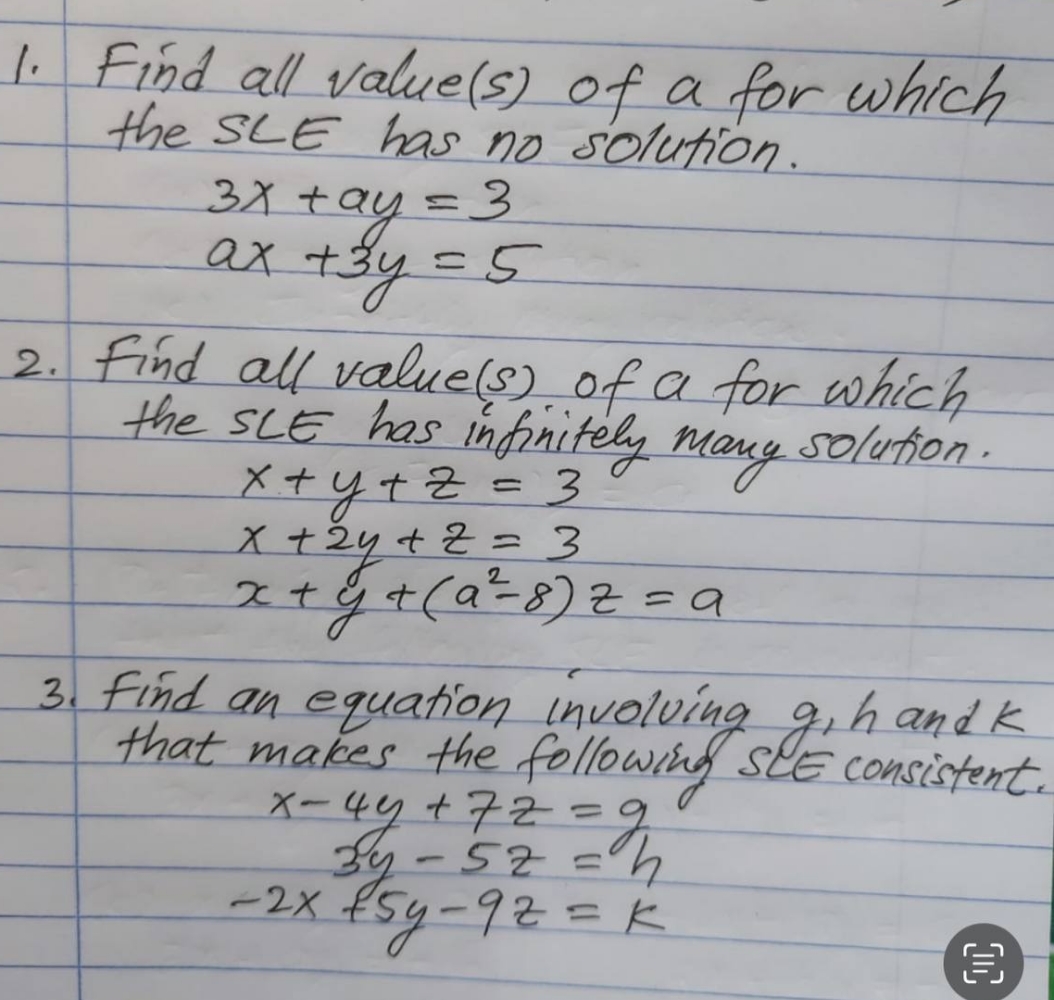 1. Find all value(s) of a for which
the SLE has no solution.
3x + ay = 3
ax + 3y = 5
2. Find all value(s) of a for which
the SLE has infinitely many solution.
x + y + z = 3
x + 2y + z = 3
x + y + (a²-8) z = a
3. Find an equation involving g, h and k
that makes the following SLE consistent.
x - 4y + 7z = g
3y - 5z = h
-2x + 5y - 9z = k